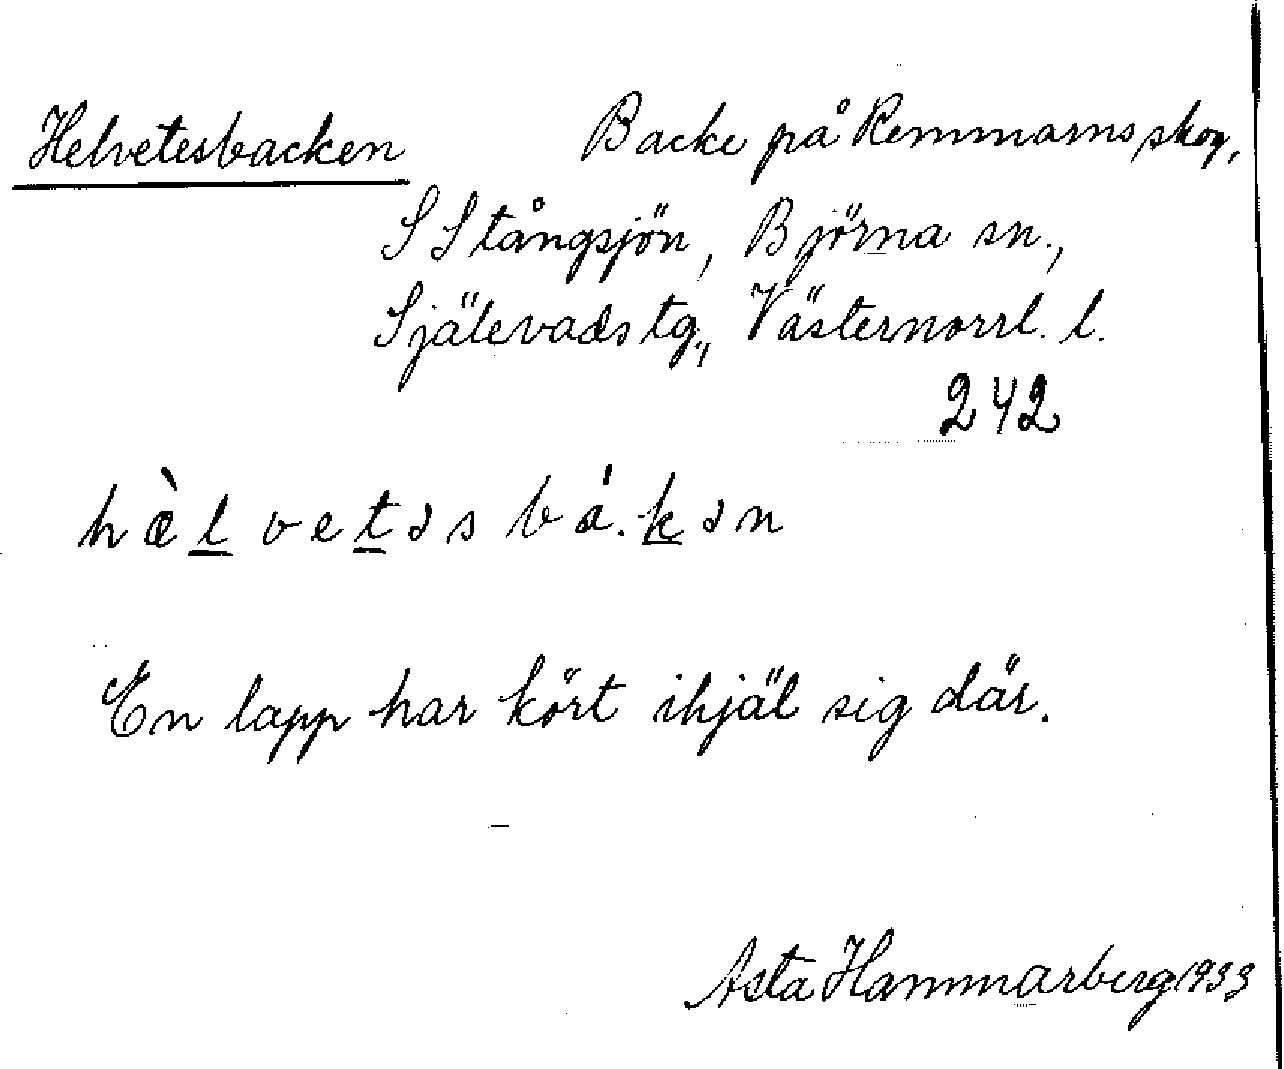 Helvetesbacken Backe på Remmarns skog,
S Stångsjön, Björna sn.,
Själevads tg., Västernorrl. l.
242
hæ̀l̲vet̲əsbá.k̲ən
En lapp har kört ihjäl sig där.
Asta Hammarberg 1933